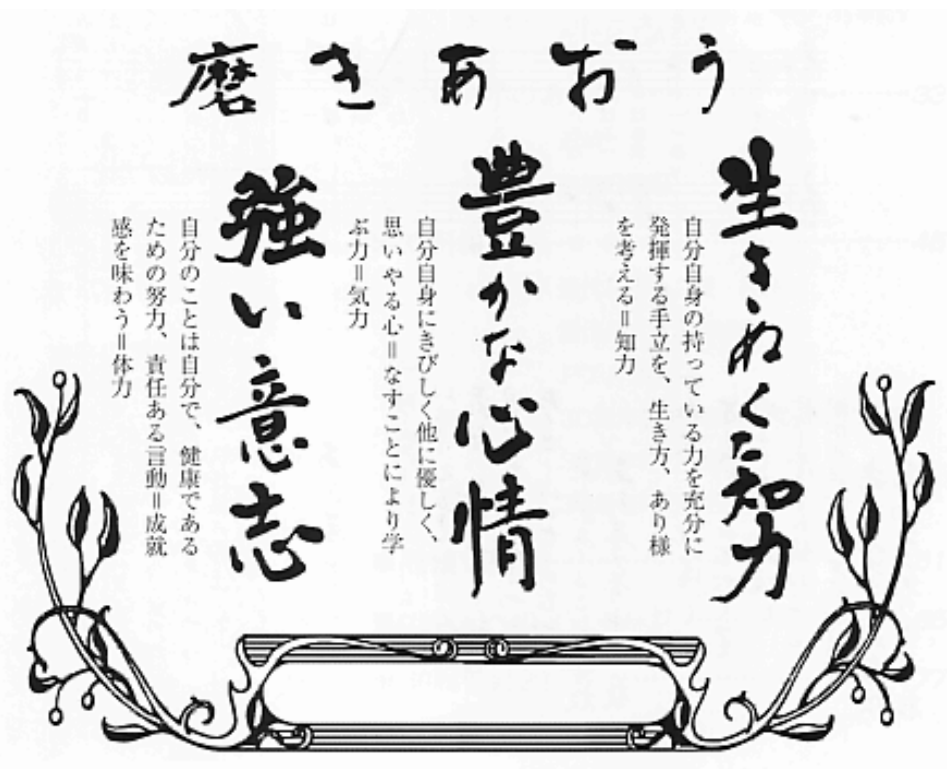 磨きあおう
生きぬくた知力
自分自身の持っている力を充分に
発揮する手立を、生き方、あり様
を考える＝知力
豊かな心情
自分自身にきびしく他に優しく、
思いやる心＝なすことにより学
ぶ力＝気力
強い意志
自分のことは自分で、健康である
ための努力、責任ある言動＝成就
感を味わう＝体力